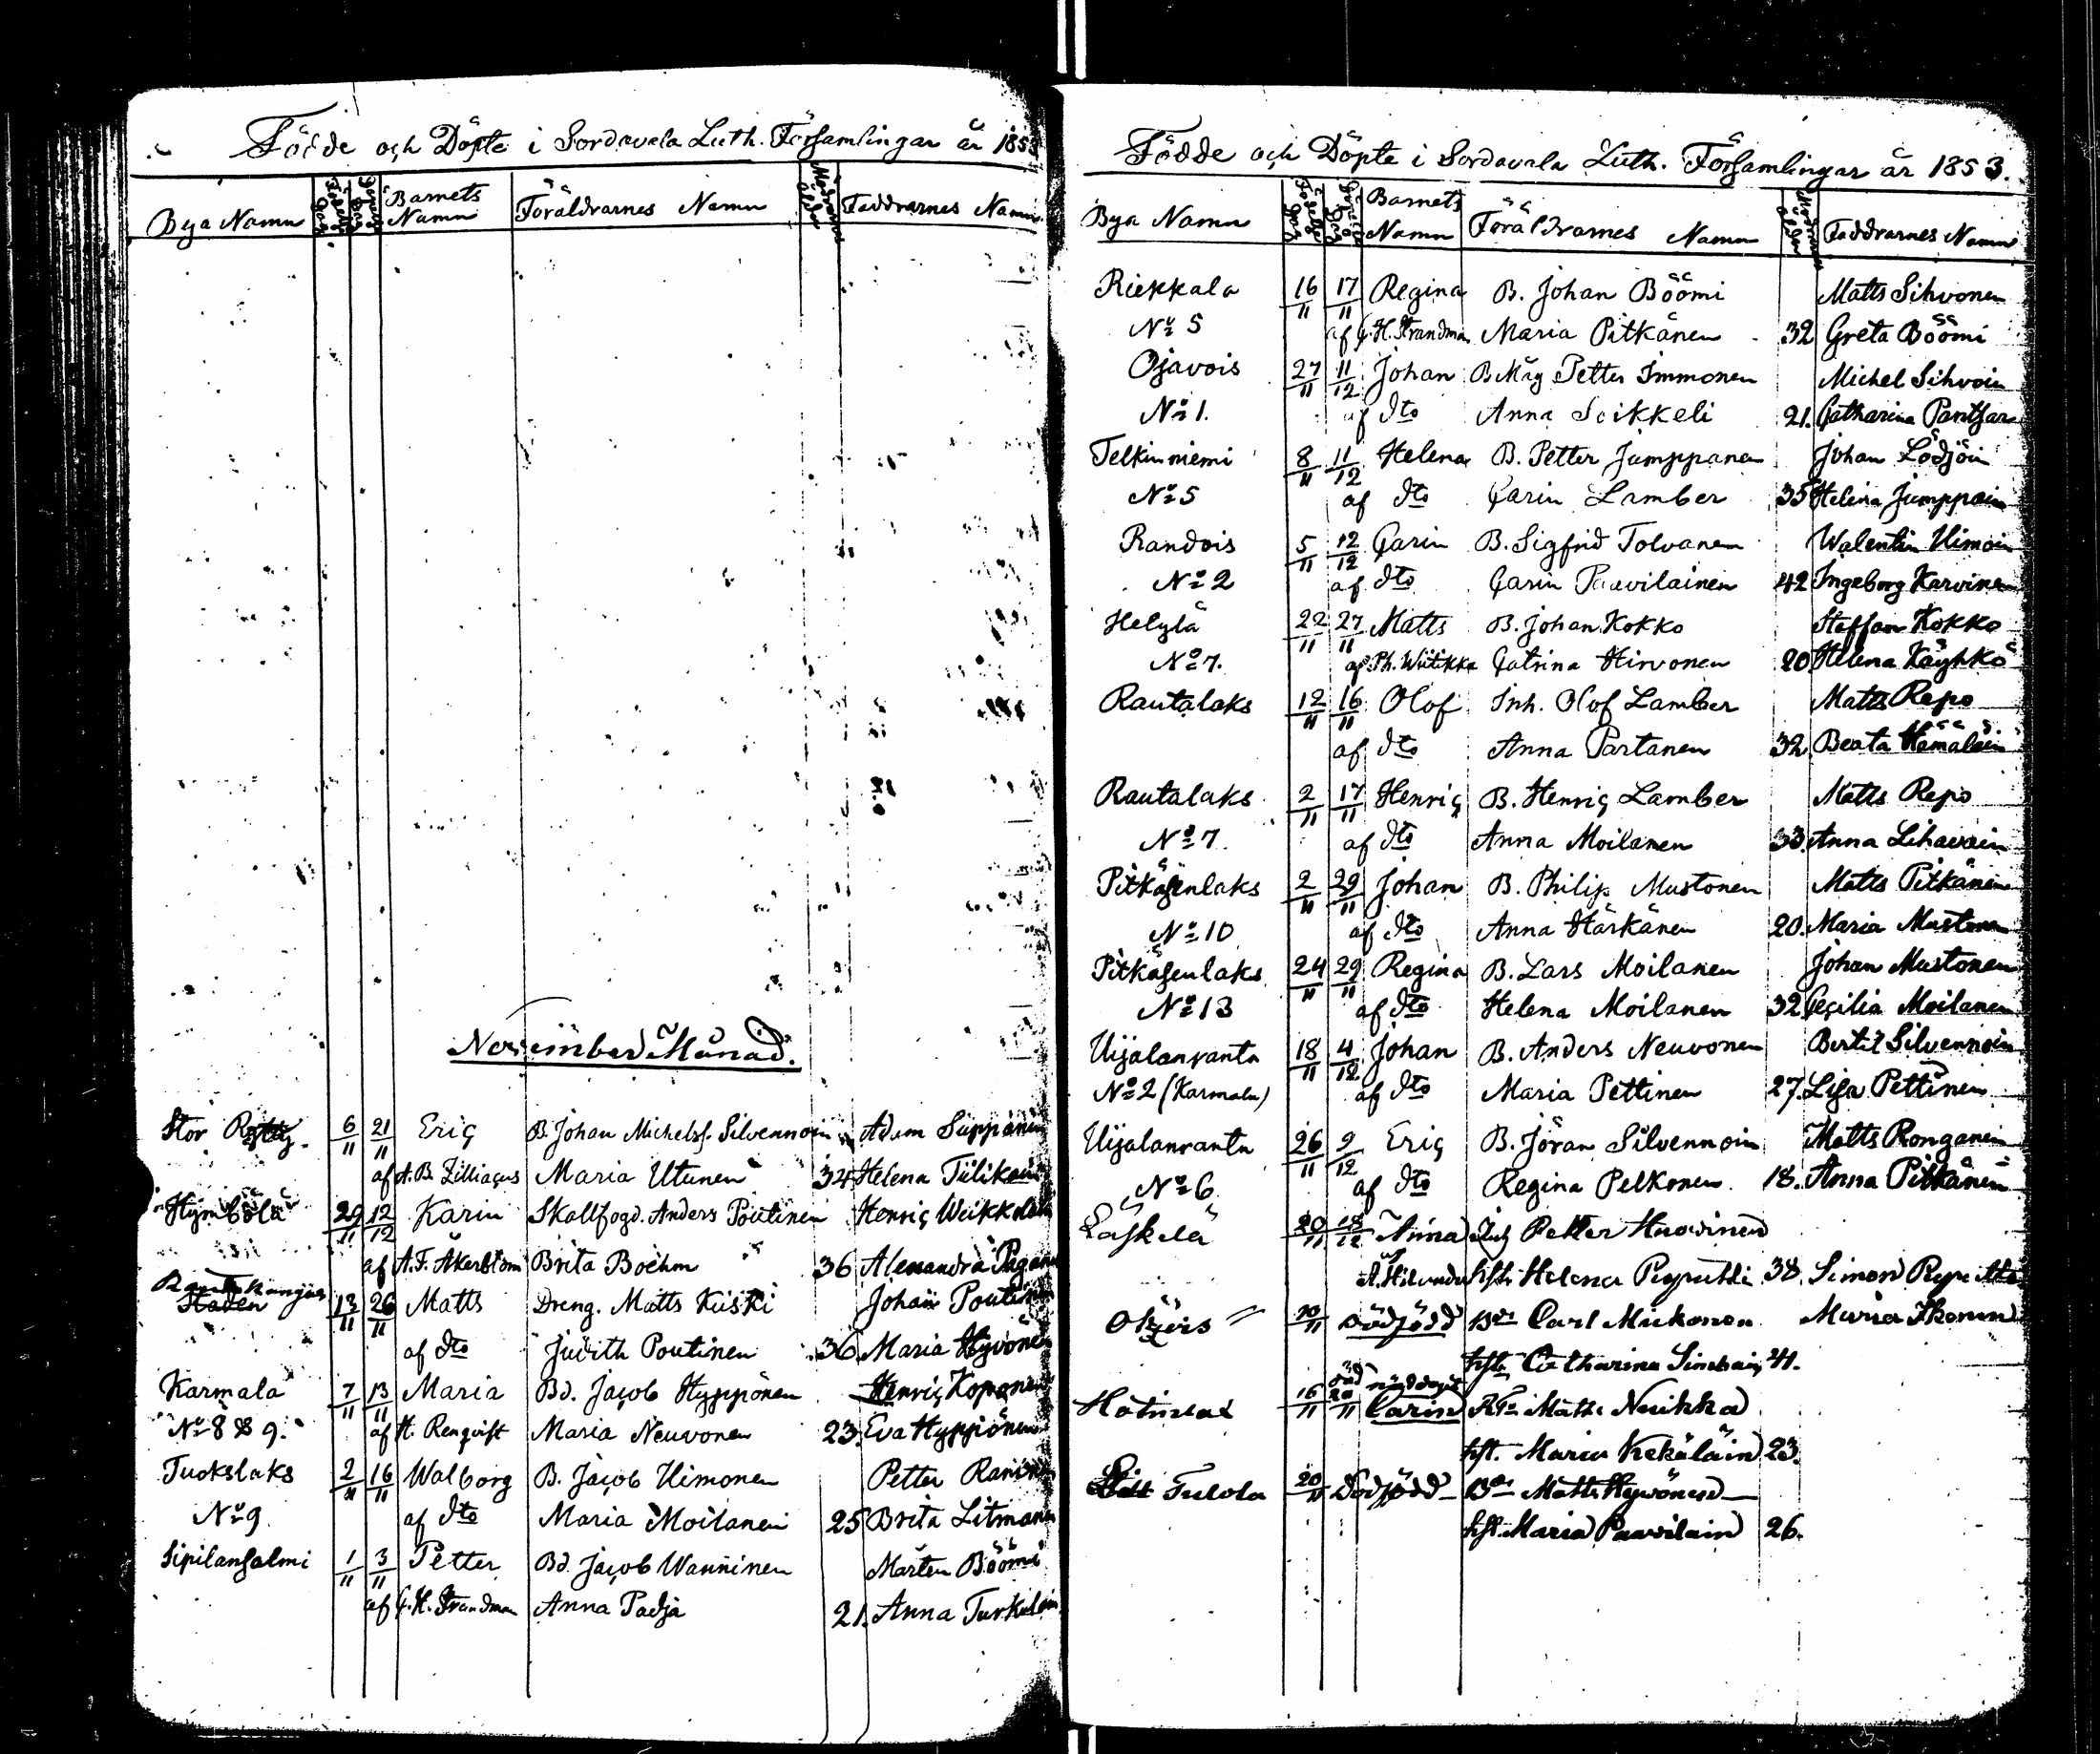 Födde och Döpte i Sordavala Luth. Församlingar år 1853
Bya Namn Födelse Dag Döpelse Dag Barnets Namn Föräldrarnes Namn Mödrarnes ålder Faddrarnes Namn
November Månad.
Stor 6/11 21/11 Eriç B. Johan Michelsf. Silvennoin Adam Suppanen
af A. B. Zilliaçus Maria Utunen 34 Helena Tiilikain
Hymbölä 29/11 12/12 Karin Skallfogd. Anders Poutinen Henriç Weikkolain
af A. F. Åkerblom Brita Boehm 36 Alexandra Pagan
Staden 13/11 26/11 Matts Dreng. Matts Kiiski Johan Poutinen
af dto Judith Poutinen 36 Maria Hyvönen
Karmala 7/11 13/11 Maria Bd. Jaçob Hyppönen Henriç Koponen
No 8 & 9. af H. Renqvist Maria Neuvonen 23. Eva Hyppönen
Tuokslaks 2/11 16/11 Walborg B. Jaçob Uimonen Petter Raninen
No 9 af dto Maria Moilanen 25 Brita Litmanen
Sipilansalmi 1/11 3/11 Petter Bd. Jaçob Wanninen Mårten Böömi
af G. H. Strandman Anna Padja 21. Anna Turkulain
Födde och Döpte i Sordavala Luth. Församlingar år 1853.
Bya Namn Födelse Dag Döpelse Dag Barnets Namn Föräldrarnes Namn Mödrarnes ålder Faddrarnes Namn
Riekkala 16/11 17/11 Regina B. Johan Böömi Matts Sihvonen
No 5 af G. H. Strandman Maria Pitkänen 32 Greta Böömi
Ojavois 27/11 11/12 Johan B Måg Petter Immonen Michel Sihvoin
No 1. af dto Anna Seikkeli 21. Catharina Pantsar
Telkinniemi 8/11 11/12 Helena B. Petter Jumppanen Johan Lödjöin
No 5 af dto Çarin Lamber 35 Helena Jumppain
Randois 5/11 12/12 Çarin B. Sigfrid Tolvanen Walentin Uimoin
No 2 af dto Çarin Paavilainen 42 Ingeborg Karvinen
Helylä 22/11 27/11 Matts B. Johan Kokko Steffan Kokko
No 7. af Ph. Wiitikka Çatrina Hirvonen 20 Helena Käyhkö
Rautalaks 12/11 16/11 Olof Inh. Olof Lamber Matts Repo
af dto Anna Partanen 32. Beata Hämäläin
Rautalaks 2/11 17/11 Henriç B. Henriç Lamber Matts Repo
No 7. af dto Anna Moilanen 33. Anna Lihavain
Pitkäsenlaks 2/11 29/11 Johan B. Philip Mustonen Matts Pitkänen
No 10 af dto Anna Härkänen 20. Maria Mustonen
Pitkäsenlaks 24/11 29/11 Regina B. Lars Moilanen Johan Mustonen
No 13 af dto Helena Moilanen 32 Çeçilia Moilanen
Uijalanranta 18/11 4/12 Johan B. Anders Neuvonen Bertil Silvennoin
No 2 (Karmala) af dto Maria Pettinen 27. Lisa Pettinen
Uijalanranta 26/11 9/12 Eriç B. Jöran Silvennoin Matts Ronganen
No 6 af dto Regina Pelkonen 18. Anna Pitkänen
Läskelä 20/11 18/12 Anna Inh Petter Huovinen
hst: Helena Repretti 38. Simon Repretti
20/11 Dödfödd Bde Carl Mickonen Maria Ikonen
hst: Catharina 41.
16/11 Carin Matts Nuikka
hst. Maria Kekäläin 23.
Tulola 20/11 Dödfödd Bde Matts Hyvönen
hst. Maria Paavilain 26.